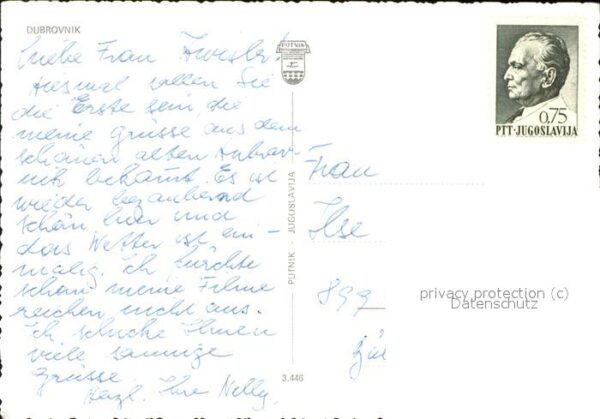 DUBROVNIK
Liebe Frau
Diesmal sollen Sie
die Erste sein, die
meine Grüsse aus dem
schönen alten Dubrov-
nik bekommt. Es ist
wieder bezaubernd
schön hier und
das Wetter ist ein-
malig. Ich fürchte
schon meine Filme
reichen nicht aus.
Ich schicke Ihnen
viele sonnige
Grüsse.
Herzl. Ihre Nelly
PUTNIK
PUTNIK - JUGOSLAVIJA
3.446
0,75
PTT-JUGOSLAVIJA
Frau
Ilse
899
privacy protection (c)
Datenschutz